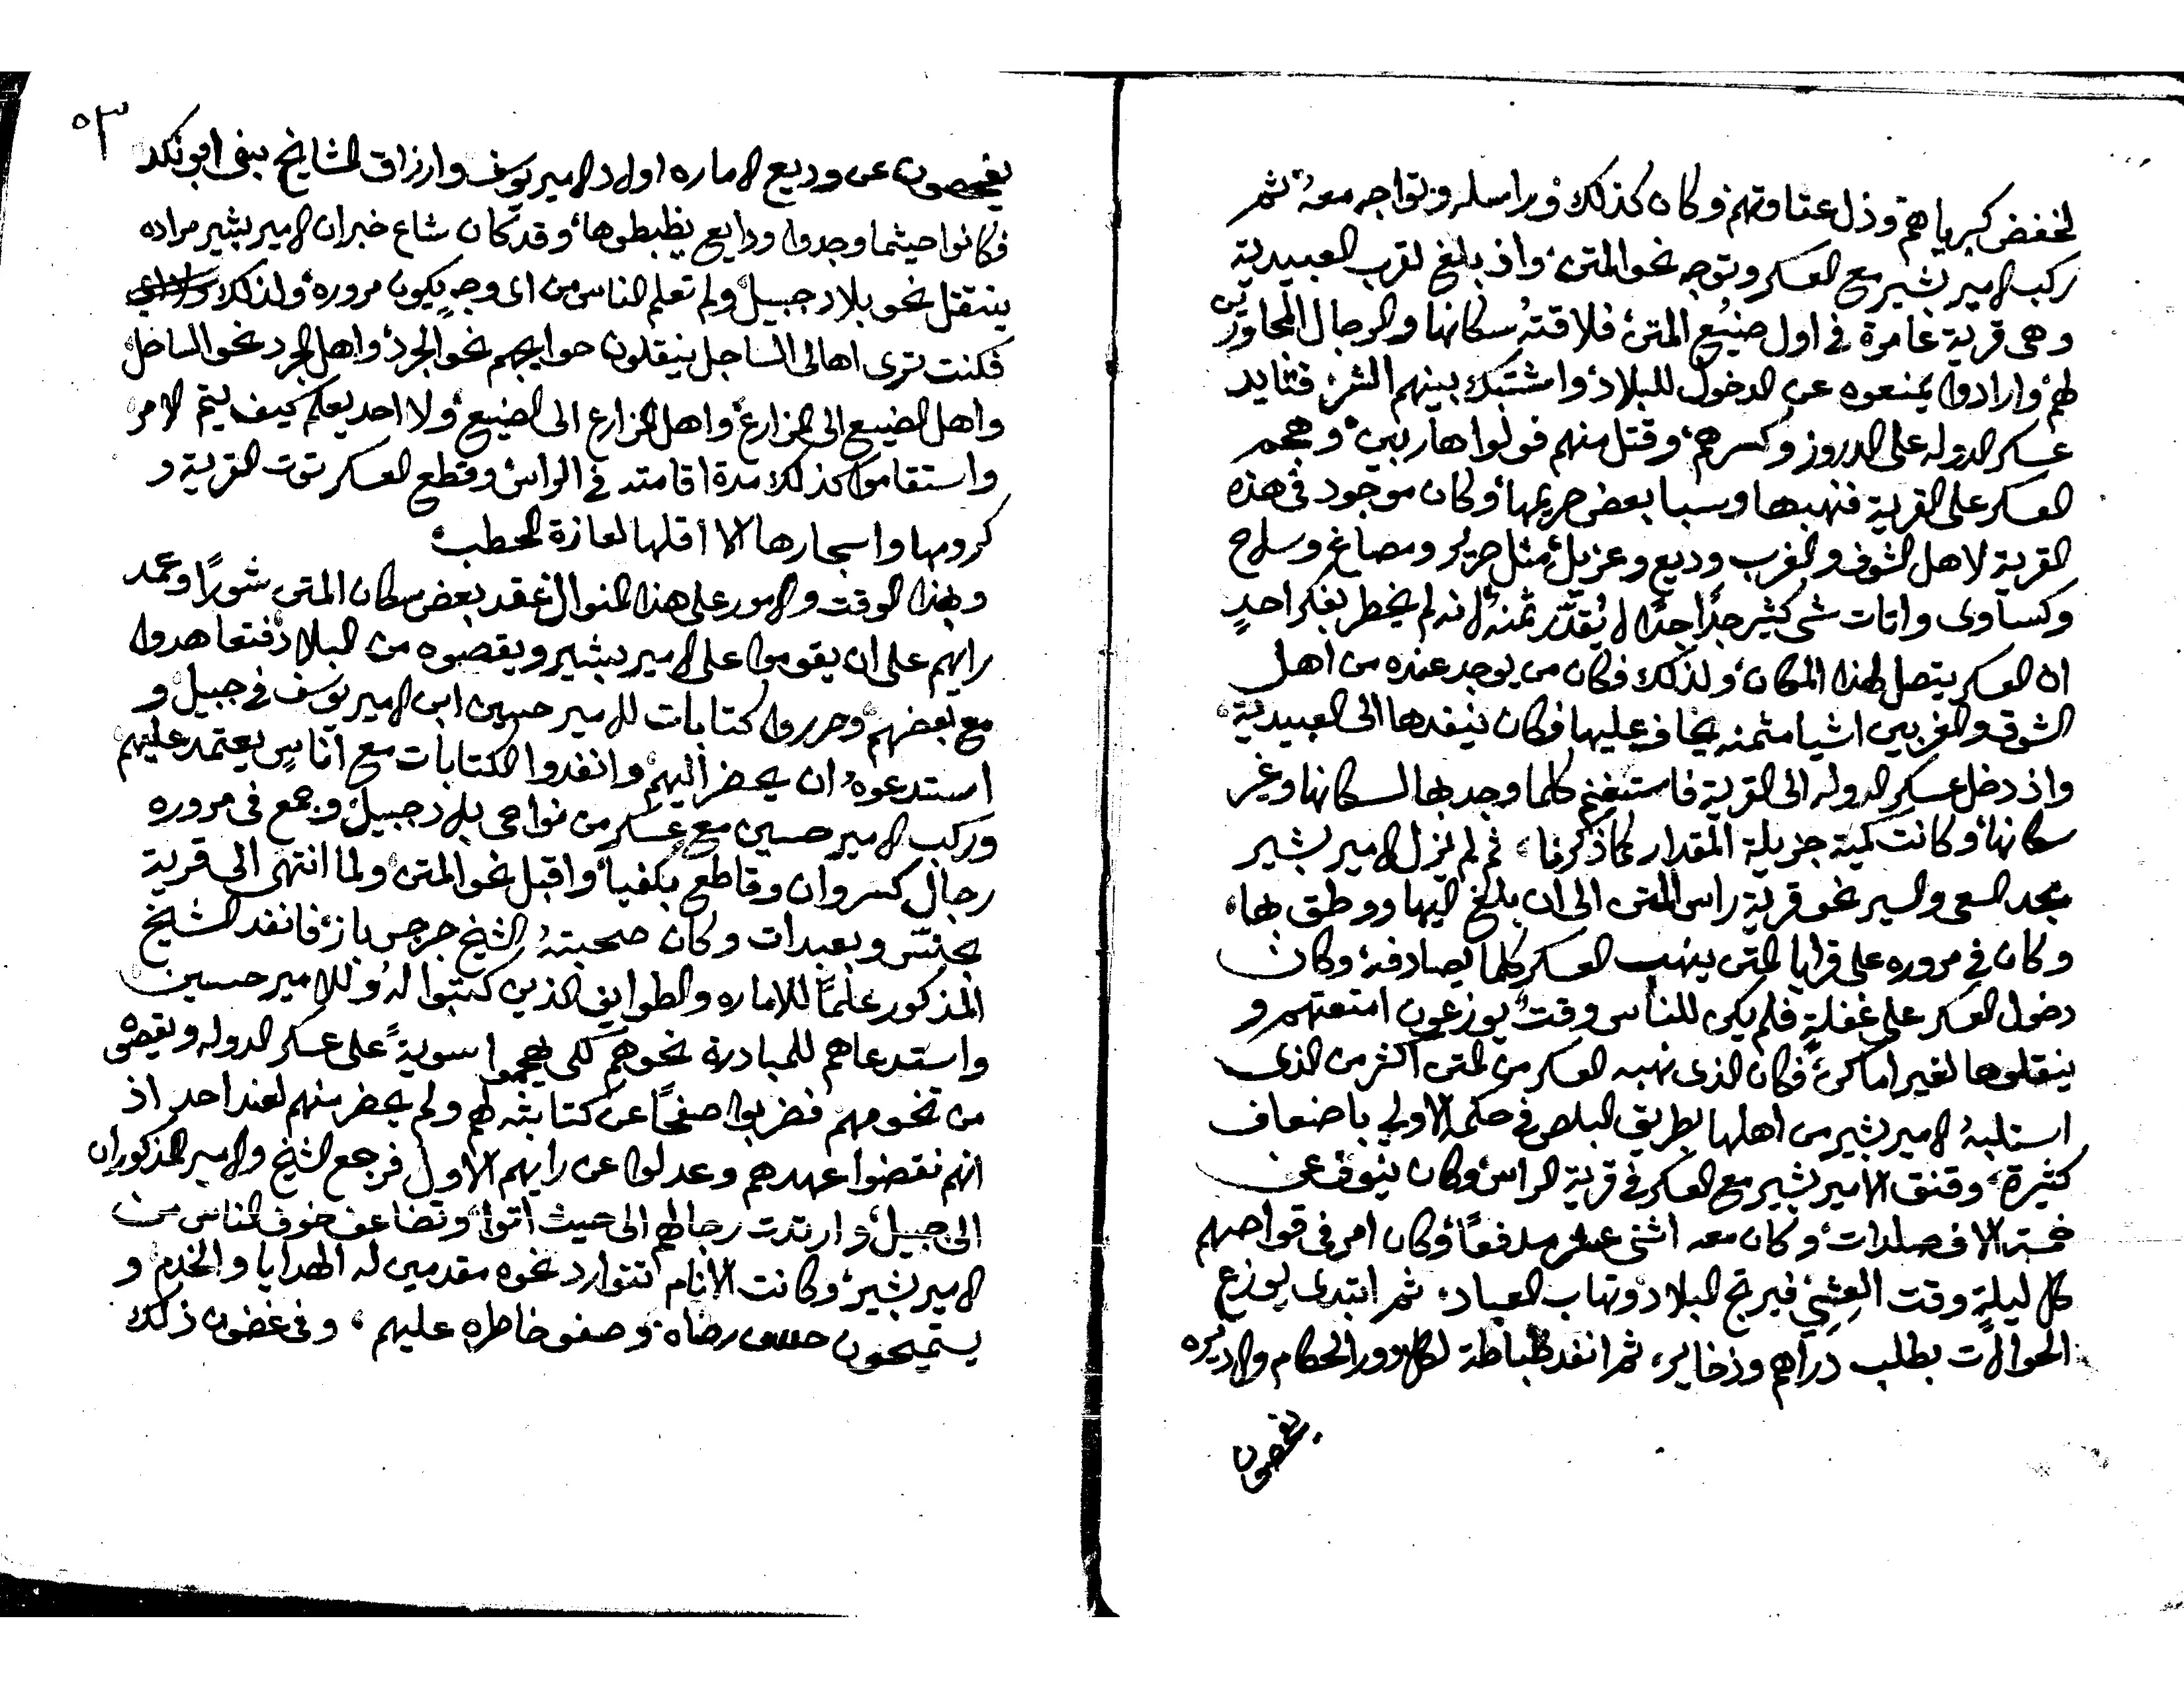 لخفض كبرياهم وذل عتاوتهم وكان كذلك وراسلهم وتواجه معهُ، ثم
ركب الامير بشير مع العسكر وتوجه نحو المتن، واذ بلغ لقرب العبيدية
وهى قرية عامرة فى اول ضيع المتن، فلاقتهُ سكانها والرجال المجاورين
لهم، وارادوا يمنعوه عن الدخول للبلاد، واشتبك بينهم الشر، فتايد
عسكر الدوله على الدروز وكسرهم، وقتل منهم فولوا هاربين، وهجم
العسكر على القرية فنهبها وسبا بعض حريمها، وكان موجود فى هذه
القرية لاهل الشوف والغرب وديع وعزيل، مثل حرير ومصاغ وسلاح
وكساوى واتات شى كثير جدًا جدًا لا يُقدَّر ثمنهُ، لانه لم يخطر بفكر احدٍ
ان العسكر يتصل لهذا المكان، ولذلك فكان من يوجد عنده من اهل
الشوف والغربين اشيا مثمنه يخاف عليها فكان ينفدها الى العبيدية،
واذ دخل عسكر الدوله الى القرية فاستغنم كلما وجد بها لسكانها وغير
سكانها، وكانت كمية جزيلة المقدار كما ذكرنا، ثم لم يزل الامير بشير
يجد السعى والسير نحو قرية راس المتن الى ان بلغ اليها ووطق بها،
وكان فى مروره على قرايا المتن ينهب العسكر كلما يصادفه، وكان
دخول العسكر على غفلةٍ فلم يكن للناس وقتٌ يوزعون امتعتهم و
ينقلوها لغير اماكن، فكان الذى نهبه العسكر من المتن اكثر من الذى
استلبهُ الامير بشير من اهلها بطريق البلص فى حكمه الاولى باضعاف
كثيرة، وقنق الامير بشير مع العسكر فى قرية الراس وكان ينوف عن
خمسة الاف صلدات، وكان معه اثنى عشر مدفعًا، وكان امر فى قواصهم
كل ليلةٍ وقت العِشِي فيرتج البلاد وتهاب العباد، ثم ابتدى يوزع
الحوالات بطلب دراهم وذخاير، ثم انفد ظباطة لكل دور الحكام والاديره
يفحصون
٥٣
يفحصون عن وديع الاماره اولاد الامير يوسف وارزاق المشايخ بنى ابو نكد
فكانوا حيثما وجدوا ودايع يظبطوها، وقد كان شاع خبر ان الامير بشير مراده
ينتقل نحو بلاد جبيل، ولم تعلم الناس من اى وجهٍ يكون مروره، ولذلك
فكنت ترى اهالى الساحل ينقلون حوايجهم نحو الجرد، واهل الجرد نحو الساحل
واهل الضيع الى المزارع، واهل المزارع الى الضيع، ولا احد يعلم كيف يتم الامر
واستقاموا كذلك مدة اقامته فى الراس، وقطع العسكر توت القرية و
كرومها واسجارها الا اقلها لعازة الحطب،
وبهذا الوقت والامور على هذا المنوال عقد بعض سكان المتن شورًا وعمد
رايهم على ان يقوموا على الامير بشير ويقصوه من البلاد، فتعاهدوا
مع بعضهم، وحرروا كتابات للامير حسين ابن الامير يوسف فى جبيل، و
استدعوهُ ان يحضر اليهم، وانفدوا الكتابات مع اناسٍ يعتمد عليهم
وركب الامير حسين مع عسكر من نواحى بلاد جبيل، وجمع فى مروره
رجال كسروان وقاطع بكفيا، واقبل نحو المتن، ولما انتهى الى قرية
بجنّس وبعبدات وكان صحبتهُ الشيخ جرجس باز، فانفد الشيخ
المذكور علمًا للاماره والطوايف الذين كتبوا لهُ وللامير حسين
واستدعاهم للمبادرة نحوهم لكى يهجموا سويةً على عسكر الدوله ويقصى
من تخومهم فضربوا صفحًا عن كتابته لهم ولم يحضر منهم لعند احد اذ
انهم نقضوا عهدهم وعدلوا عن رايهم الاول فرجع الشيخ والامير المذكوران
الى جبيل، وارتدت رجالهم الى حيث اتوا، وتضاعف خوف الناس من
الامير بشير، وكانت الانام تتوارد نحوه مقدمين له الهدايا والخدم و
يستميحون حسن رضاه، وصفو خاطره عليهم، وفى غضون ذلك